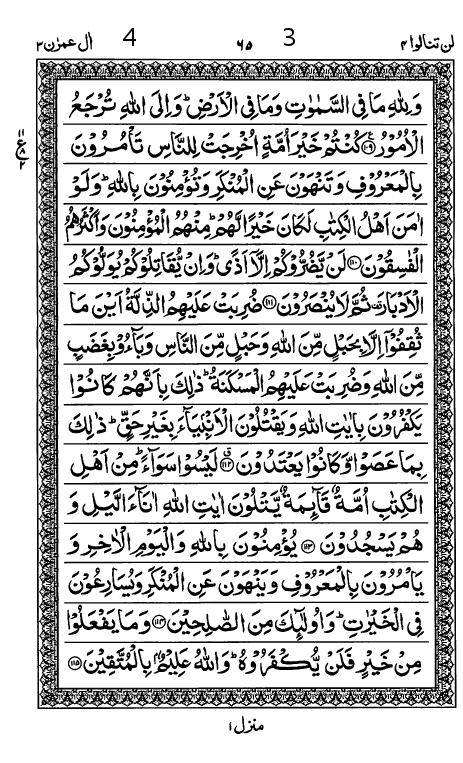 لن تنالوا ۴ 3 ٦٥ 4 اٰل عمرٰن ۳
وَلِلّٰهِ مَا فِی السَّمٰوٰتِ وَمَا فِی الْاَرْضِؕ وَاِلَی اللّٰهِ تُرْجَعُ
الْاُمُوْرُ ﴿۱۰۹﴾ كُنْتُمْ خَیْرَ اُمَّةٍ اُخْرِجَتْ لِلنَّاسِ تَاْمُرُوْنَ
بِالْمَعْرُوْفِ وَتَنْهَوْنَ عَنِ الْمُنْكَرِ وَتُؤْمِنُوْنَ بِاللّٰهِؕ وَلَوْ
اٰمَنَ اَهْلُ الْكِتٰبِ لَكَانَ خَیْرًا لَّهُمْؕ مِنْهُمُ الْمُؤْمِنُوْنَ وَاَكْثَرُهُمُ
الْفٰسِقُوْنَ ﴿۱۱۰﴾ لَنْ یَّضُرُّوْكُمْ اِلَّاۤ اَذًیؕ وَاِنْ یُّقَاتِلُوْكُمْ یُوَلُّوْكُمُ
الْاَدْبَارَ۫ ثُمَّ لَا یُنْصَرُوْنَ ﴿۱۱۱﴾ ضُرِبَتْ عَلَیْهِمُ الذِّلَّةُ اَیْنَ مَا
ثُقِفُوْۤا اِلَّا بِحَبْلٍ مِّنَ اللّٰهِ وَحَبْلٍ مِّنَ النَّاسِ وَبَآءُوْ بِغَضَبٍ
مِّنَ اللّٰهِ وَضُرِبَتْ عَلَیْهِمُ الْمَسْكَنَةُؕ ذٰلِكَ بِاَنَّهُمْ كَانُوْا
یَكْفُرُوْنَ بِاٰیٰتِ اللّٰهِ وَیَقْتُلُوْنَ الْاَنْۢبِیَآءَ بِغَیْرِ حَقٍّؕ ذٰلِكَ
بِمَا عَصَوْا وَّكَانُوْا یَعْتَدُوْنَ ﴿۱۱۲﴾ لَیْسُوْا سَوَآءًؕ مِنْ اَهْلِ
الْكِتٰبِ اُمَّةٌ قَآئِمَةٌ یَّتْلُوْنَ اٰیٰتِ اللّٰهِ اٰنَآءَ الَّیْلِ وَ
هُمْ یَسْجُدُوْنَ ﴿۱۱۳﴾ یُؤْمِنُوْنَ بِاللّٰهِ وَالْیَوْمِ الْاٰخِرِ وَ
یَاْمُرُوْنَ بِالْمَعْرُوْفِ وَیَنْهَوْنَ عَنِ الْمُنْكَرِ وَیُسَارِعُوْنَ
فِی الْخَیْرٰتِؕ وَاُولٰٓئِكَ مِنَ الصّٰلِحِیْنَ ﴿۱۱۴﴾ وَمَا یَفْعَلُوْا
مِنْ خَیْرٍ فَلَنْ یُّكْفَرُوْهُؕ وَاللّٰهُ عَلِیْمٌۢ بِالْمُتَّقِیْنَ ﴿۱۱۵﴾
منزل ۱